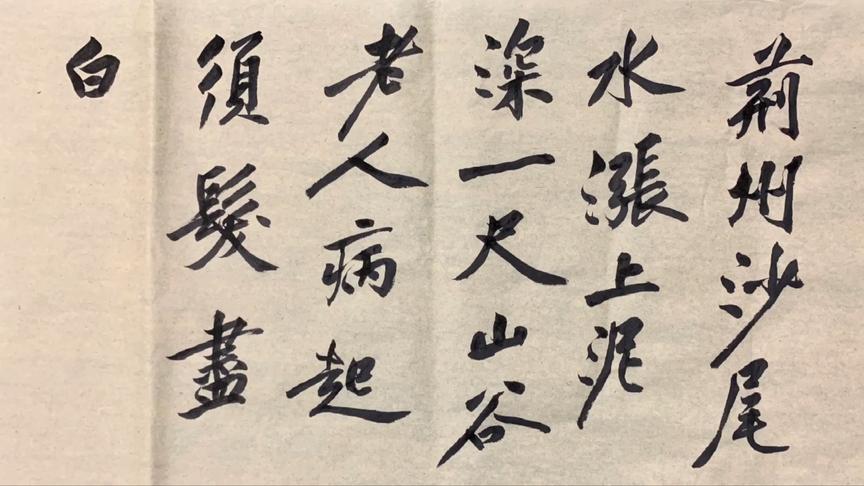 荊州沙尾
水漲上泥
深一尺山谷
老人病起
須髮盡
白